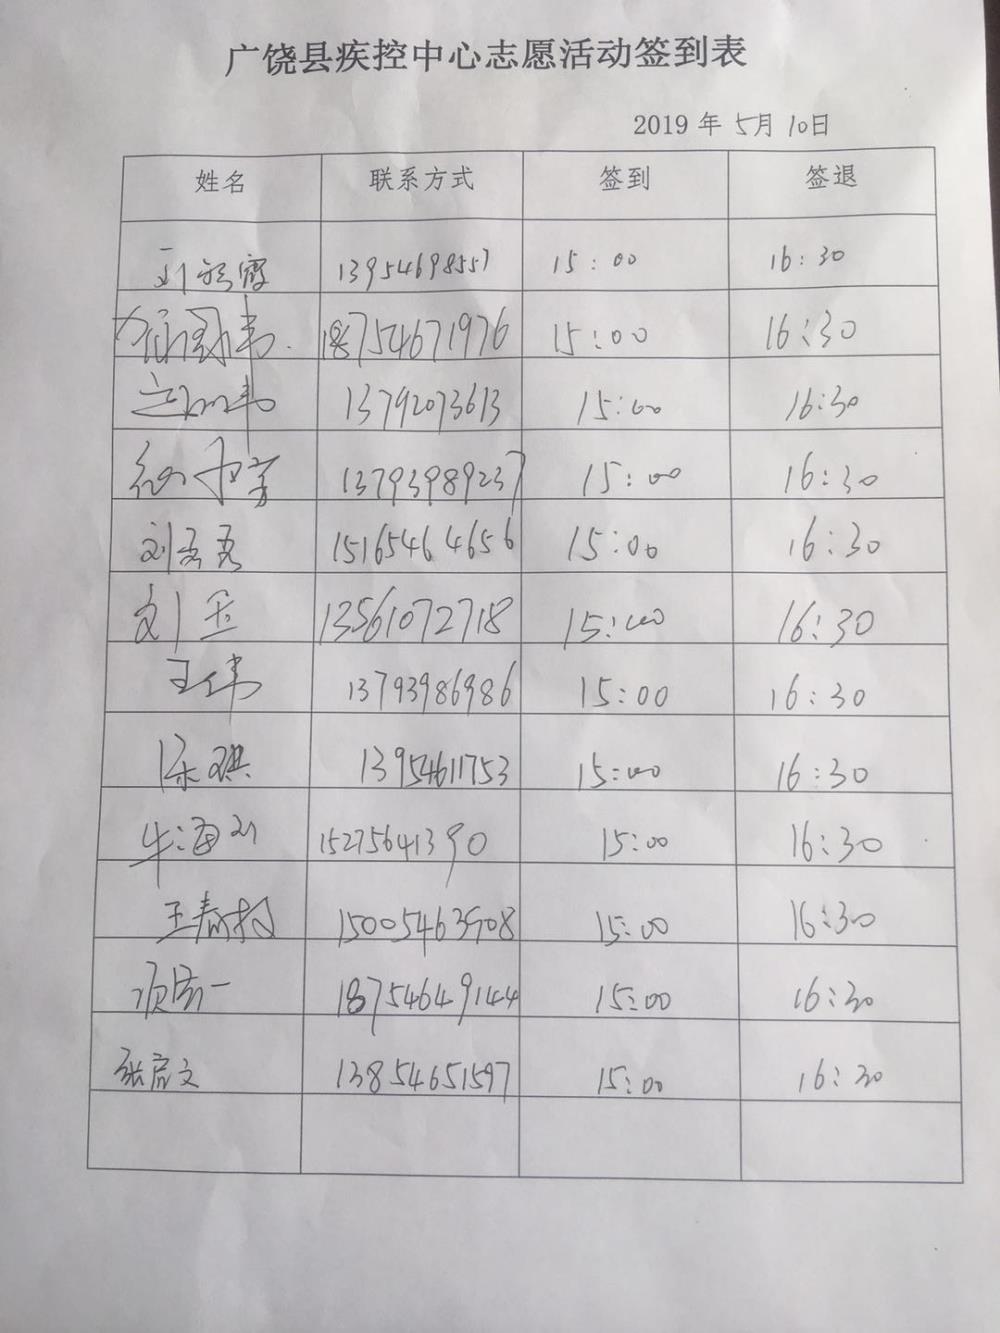 广饶县疾控中心志愿活动签到表
2019 年 5月 10日
姓名 联系方式 签到 签退
13954698557 15:00 16:30
18754671976 15:00 16:30
13792073613 15:00 16:30
13793989237 15:00 16:30
15165464656 15:00 16:30
刘玉 13561072718 15:00 16:30
王伟 13793986986 15:00 16:30
陈琪 13954611753 15:00 16:30
牛海 15275641390 15:00 16:30
王春 15005463908 15:00 16:30
18754649144 15:00 16:30
张 文 13854651597 15:00 16:30